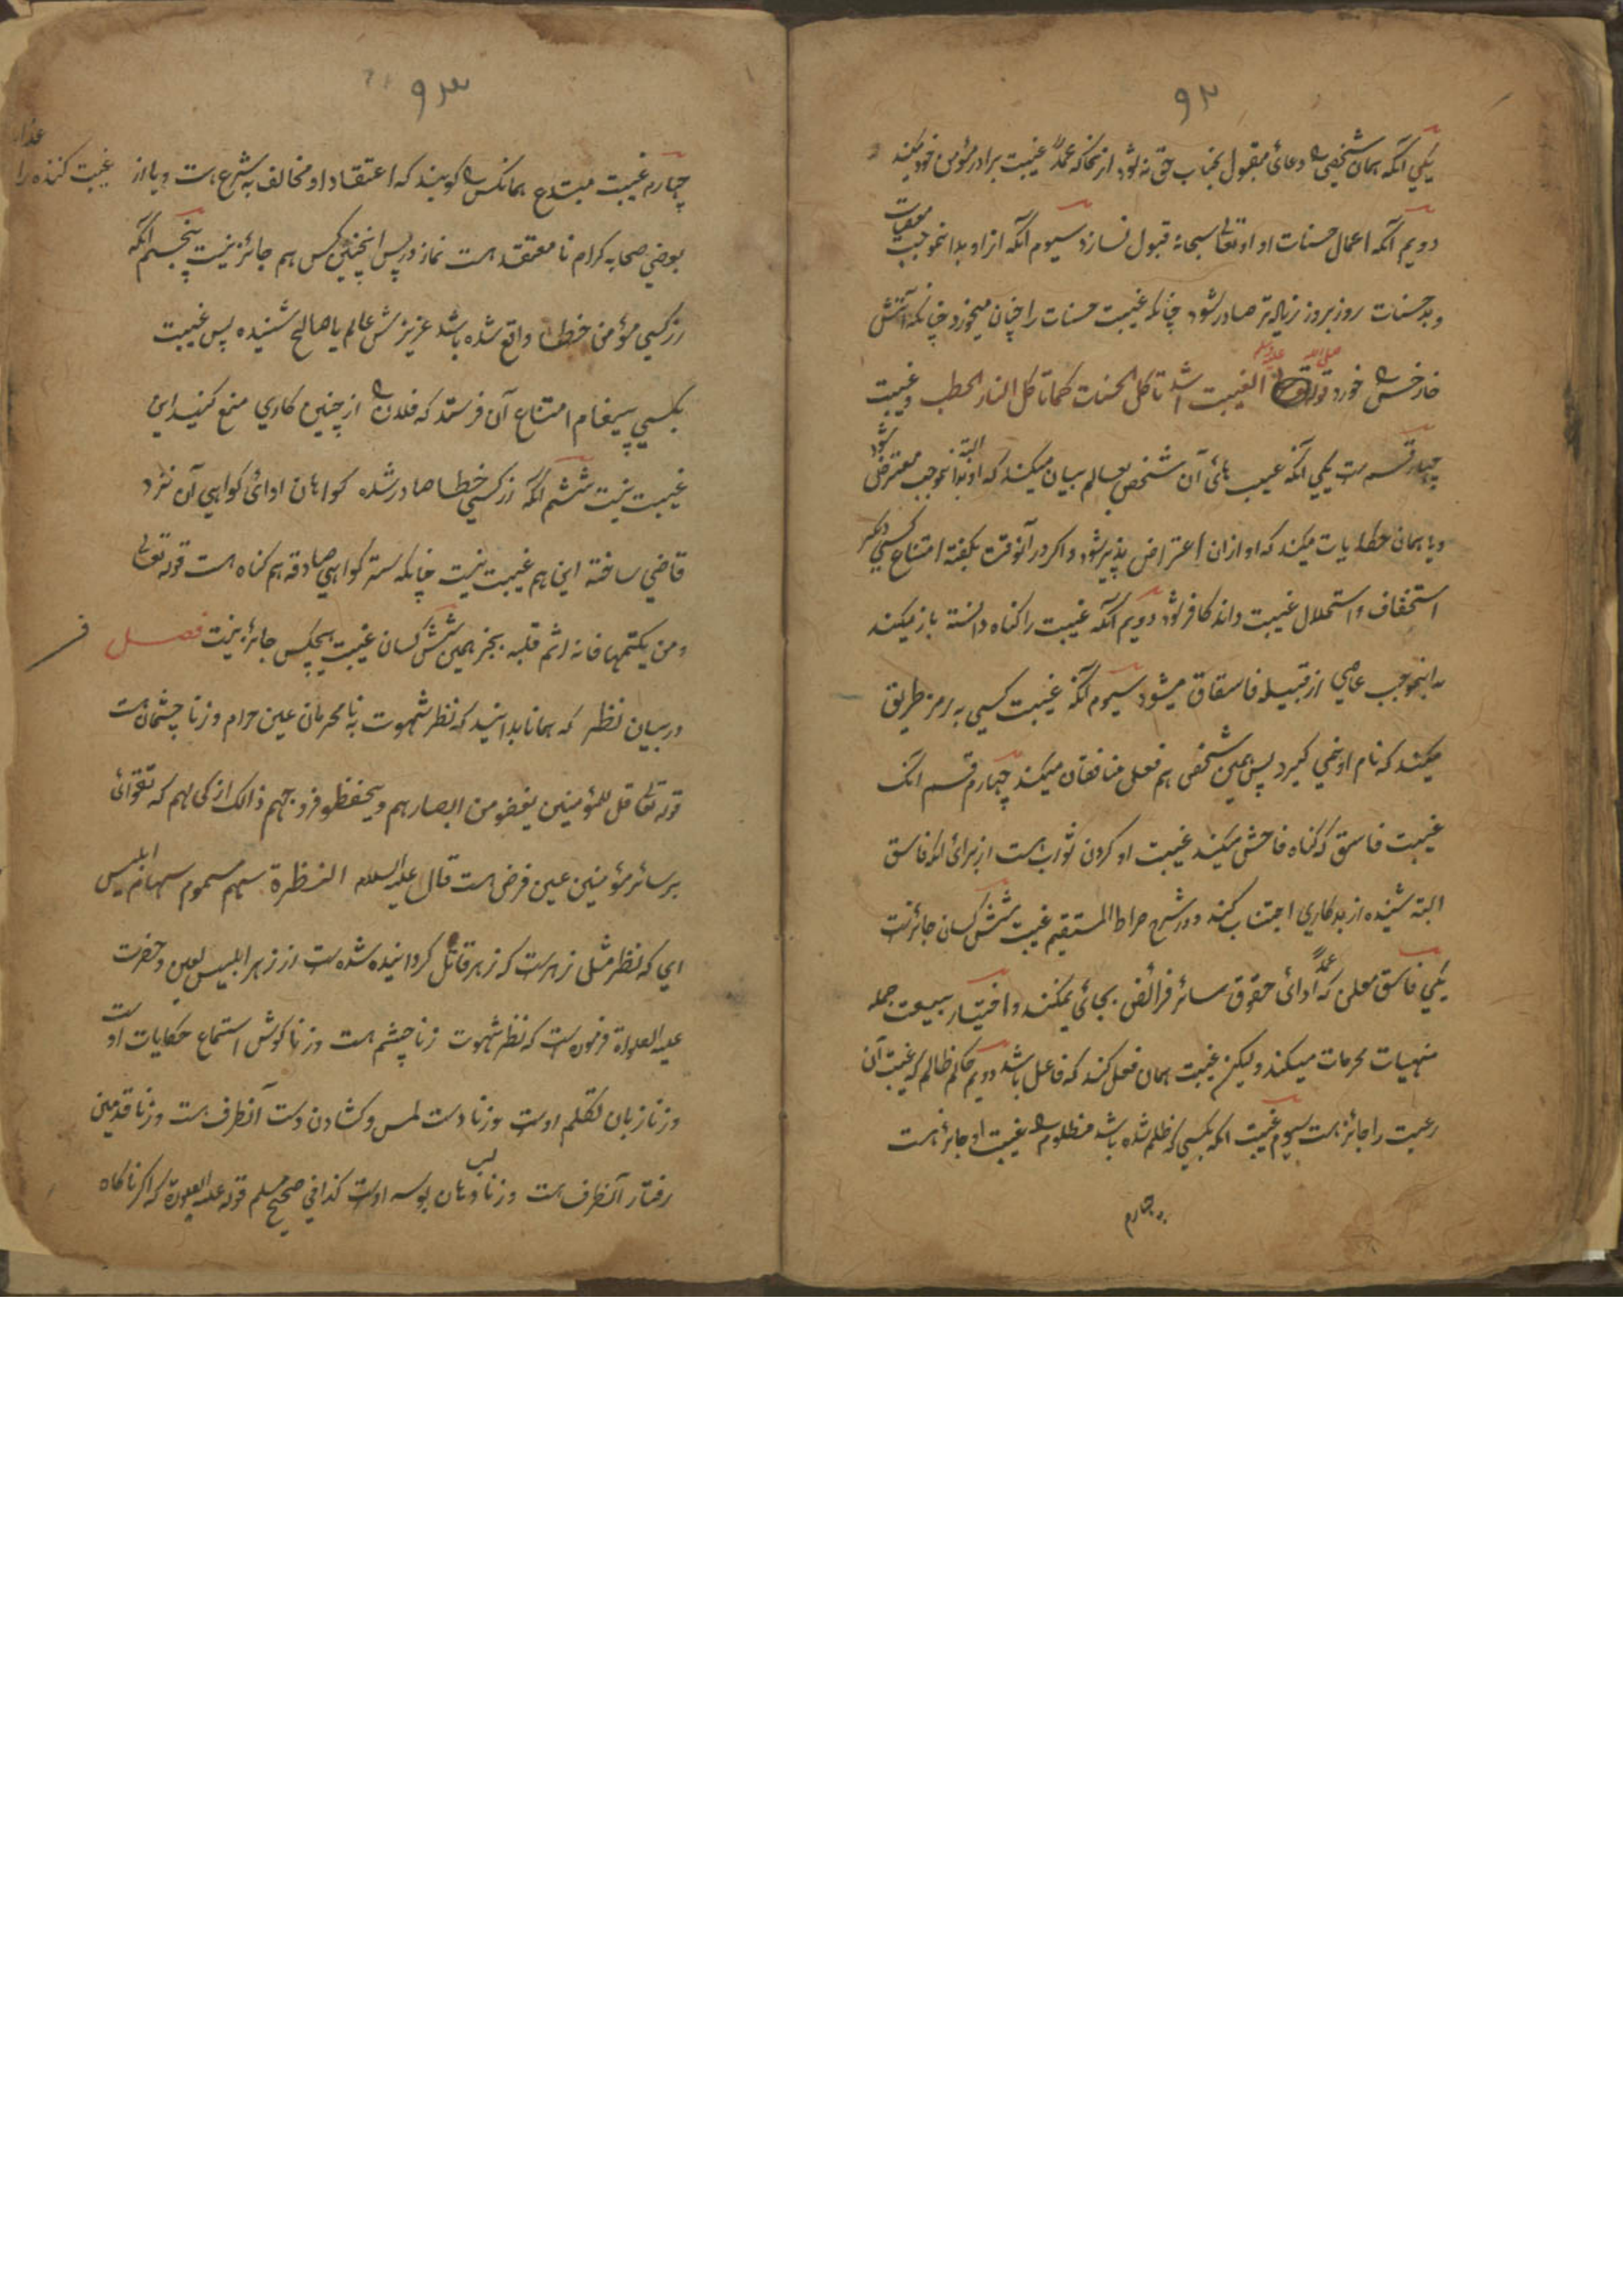 ۹۲
یکي آنکه همان شخصی دعائ مقبول بجناب حق نه شود از آنجا که عمداً غیبت برادر مؤمن خود میکند
دویم آنکه اعمال حسنات او او تعالی سبحانه قبول نسازد سیوم آنکه از او بدانموجب معصیات
و بد حسنات روز بروز زیاده تر صادر شود چنانکه غیبت حسنات را چنان میخورد چنانکه آتش
خار خس خورد قوله صلی الله علیه وسلم الغیبت اشد تاکل الحسنات کما تاکل النار الحطب و غیبت
چهار قسم ست یکي آنکه عیب هائ آن شخص بعالم بیان میکند که او البته بدانموجب معترض شود
و یا همان خطایات میکند که او ازان اعتراض پذیر شود و اکر در آنوقت بکفته امتناع کسي دیکر
استخفاف و استحلال غیبت داند کافر شود دویم آنکه غیبت را کناه دانسته باز میکند
به اینموجب عاصي از قبیله فاسقان میشود سیوم آنکه غیبت کسي به رمز طریق
میکند که نام او نمي کیرد پس همین شخص هم فعل منافقان میکند چهارم قسم آنک
غیبت فاسق که کناه فاحش میکند غیبت او کردن ثواب است از برائ آنکه فاسق
البته شنیده از بدکاري اجتناب کند و در شرح صراط المستقیم غیبت شش کسان جائز ست
یکي فاسق معلن که عمداً ادائ حقوق سائر فرائض بجائ نمیکند و اختیار بیعت جمله
منهیات محرمات میکند ولیکن غیبت همان فعل کند که فاعل باشد دویم حاکم ظالم که غیبت آن
رعیت را جائز است سیوم غیبت آنکه بکسي که ظلم شده باشد مظلوم غیبت او جائز است
چهارم
۹۳
چهارم غیبت مبتدع همانکس کویند که اعتقاد او مخالف به شرع ست و یا از غیبت کننده را
بعضي صحابه کرام نا معتقد است نماز در پس اینچنین کس هم جائز نیست پنجم آنکه
از کسي مؤمن خطا واقع شده باشد عزیزش عالم یا صالح شنیده پس غیبت
بکسي پیغام امتناع آن فرستد که فلان از چنین کاري منع کنید این
غیبت نیست ششم آنکه از کسي خطا صادر شده کواهان ادائ کواهي آن نزد
قاضي ساخته این هم غیبت نیست چنانکه ستر کواهي صادقه هم کناه است قوله تعالی
ومن یکتمها فانه اثم قلبه بجز همین شش کسان غیبت هیچکس جائز نیست فصل
در بیان نظر که همانا بدانید که نظر شهوت به نا محرمان عین حرام و زنا چشمان ست
قوله تعالی قل للمؤمنین یغضو من ابصارهم ویحفظو فروجهم ذالک ازکی لهم که تقوائ
بر سائر مؤمنین عین فرض است قال علیه السلام النظرة سهم مسموم سهام ابلیس
اي که نظر مثلی زهرست که زهر قاتل کردانیده شده ست از زهر ابلیس لعین و حضرت
علیه الصلواة فرموده ست که نظر شهوت زنا چشم است و زنا کوش استماع حکایات او ست
و زنا زبان تکلم اوست و زنا دست لمس و کشادن دست آنطرف ست و زنا قدمین
رفتار آنطرف ست و زنا لب دهان بوسه اوست کذا في صحیح مسلم قوله علیه الصلوة که اکر ناکاه